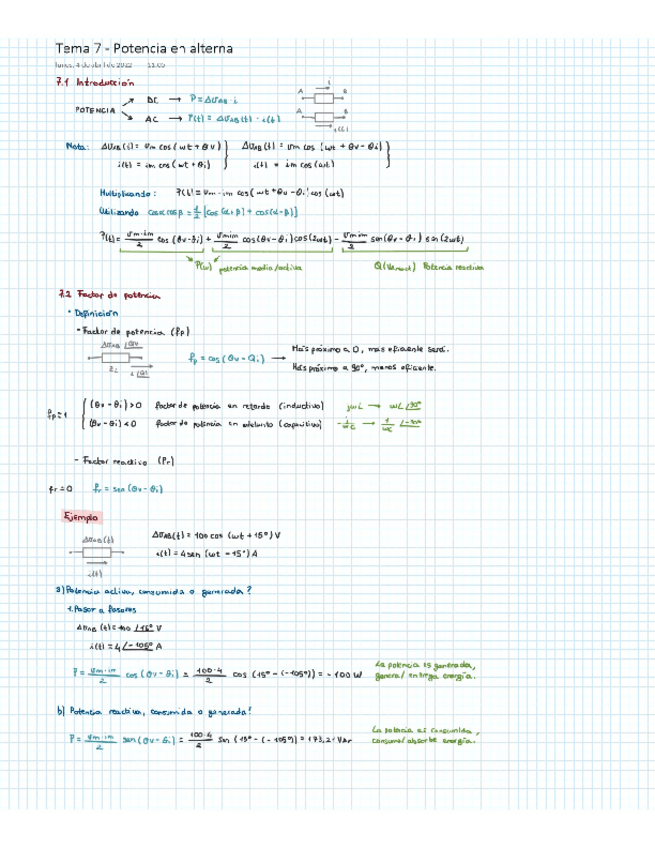 Tema 7 - Potencia en alterna
lunes, 4 de abril de 2022 11:05
7.1 Introducción
POTENCIA
DC → P = ΔU_AB i
AC → P(t) = ΔU_AB(t) · i(t)
A B
i
A B
i(t)
Nota: ΔU_AB(t) = Um cos(wt + θv) } ΔU_AB(t) = Um cos(wt + θv - θi) }
i(t) = im cos(wt + θi) i(t) = im cos(wt)
Multiplicando: P(t) = Um · im cos(wt + θv - θi) cos(wt)
Utilizando cos α cos β = 1/2 [cos(α+β) + cos(α-β)]
P(t) = Um·im/2 cos(θv - θi) + Um im/2 cos(θv - θi) cos(2wt) - Um im/2 sen(θv - θi) sen(2wt)
P(w) potencia media/activa Q(VAreact) Potencia reactiva
7.2 Factor de potencia
• Definición
- Factor de potencia (fp)
ΔU_AB
fp = cos(θv - θi) → Más próximo a 0, mas eficiente será.
Más próximo a 90°, menos eficiente.
fp = 1 { (θv - θi) > 0 factor de potencia en retardo (inductivo) jwL → wL /90°
(θv - θi) < 0 factor de potencia en adelanto (capacitivo) -j/wC → 1/wC /-90°
- Factor reactivo (fr)
fr = 0 fr = sen(θv - θi)
Ejemplo
ΔU_AB(t)
i(t)
ΔU_AB(t) = 100 cos(wt + 15°) V
i(t) = 4 sen(wt - 15°) A
a) Potencia activa, consumida o generada?
1. Pasar a fasores
ΔU_AB(t) = 100 /15° V
i(t) = 4 /-105° A
P = Um·im/2 cos(θv - θi) = 100·4/2 cos(15° - (-105°)) = -100 W
La potencia es generada,
genera/entrega energía.
b) Potencia reactiva, consumida o generada?
P = Um·im/2 sen(θv - θi) = 100·4/2 sen(15° - (-105°)) = 173,21 VAr
La potencia es consumida,
consume/absorbe energía.